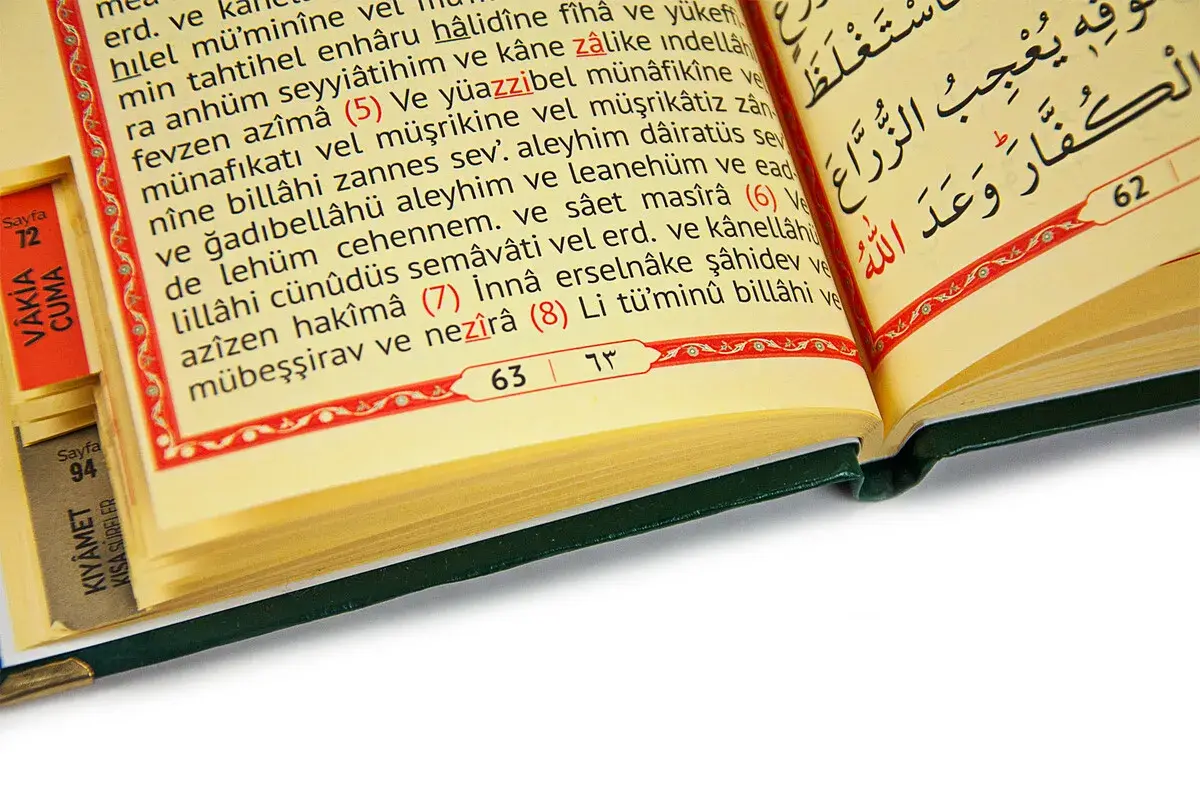 erd. ve kânellâ
hılel mü'minîne vel mü'm
min tahtihel enhâru hâlidîne fîhâ ve yükeff
ra anhüm seyyiâtihim ve kâne zâlike ındellâhi
fevzen azîmâ (5) Ve yüazzibel münâfikîne vel
münafıkatı vel müşrikine vel müşrikâtiz zân-
nîne billâhi zannes sev'. aleyhim dâiratüs sev'
ve ğadıbellâhü aleyhim ve leanehüm ve ead-
de lehüm cehennem. ve sâet masîrâ (6) Ve
lillâhi cünûdüs semâvâti vel erd. ve kânellâhü
azîzen hakîmâ (7) İnnâ erselnâke şâhidev ve
mübeşşirav ve nezîrâ (8) Li tü'minû billâhi ve
63 | ٦٣
Sayfa
72
VÂKIA
CUMA
Sayfa
94
KIYÂMET
KISA SÛRELER
فَاسْتَغْلَظَ
سُوقِهِ يُعْجِبُ الزُّرَّاعَ
الْكُفَّارَ وَعَدَ اللّٰهُ
62